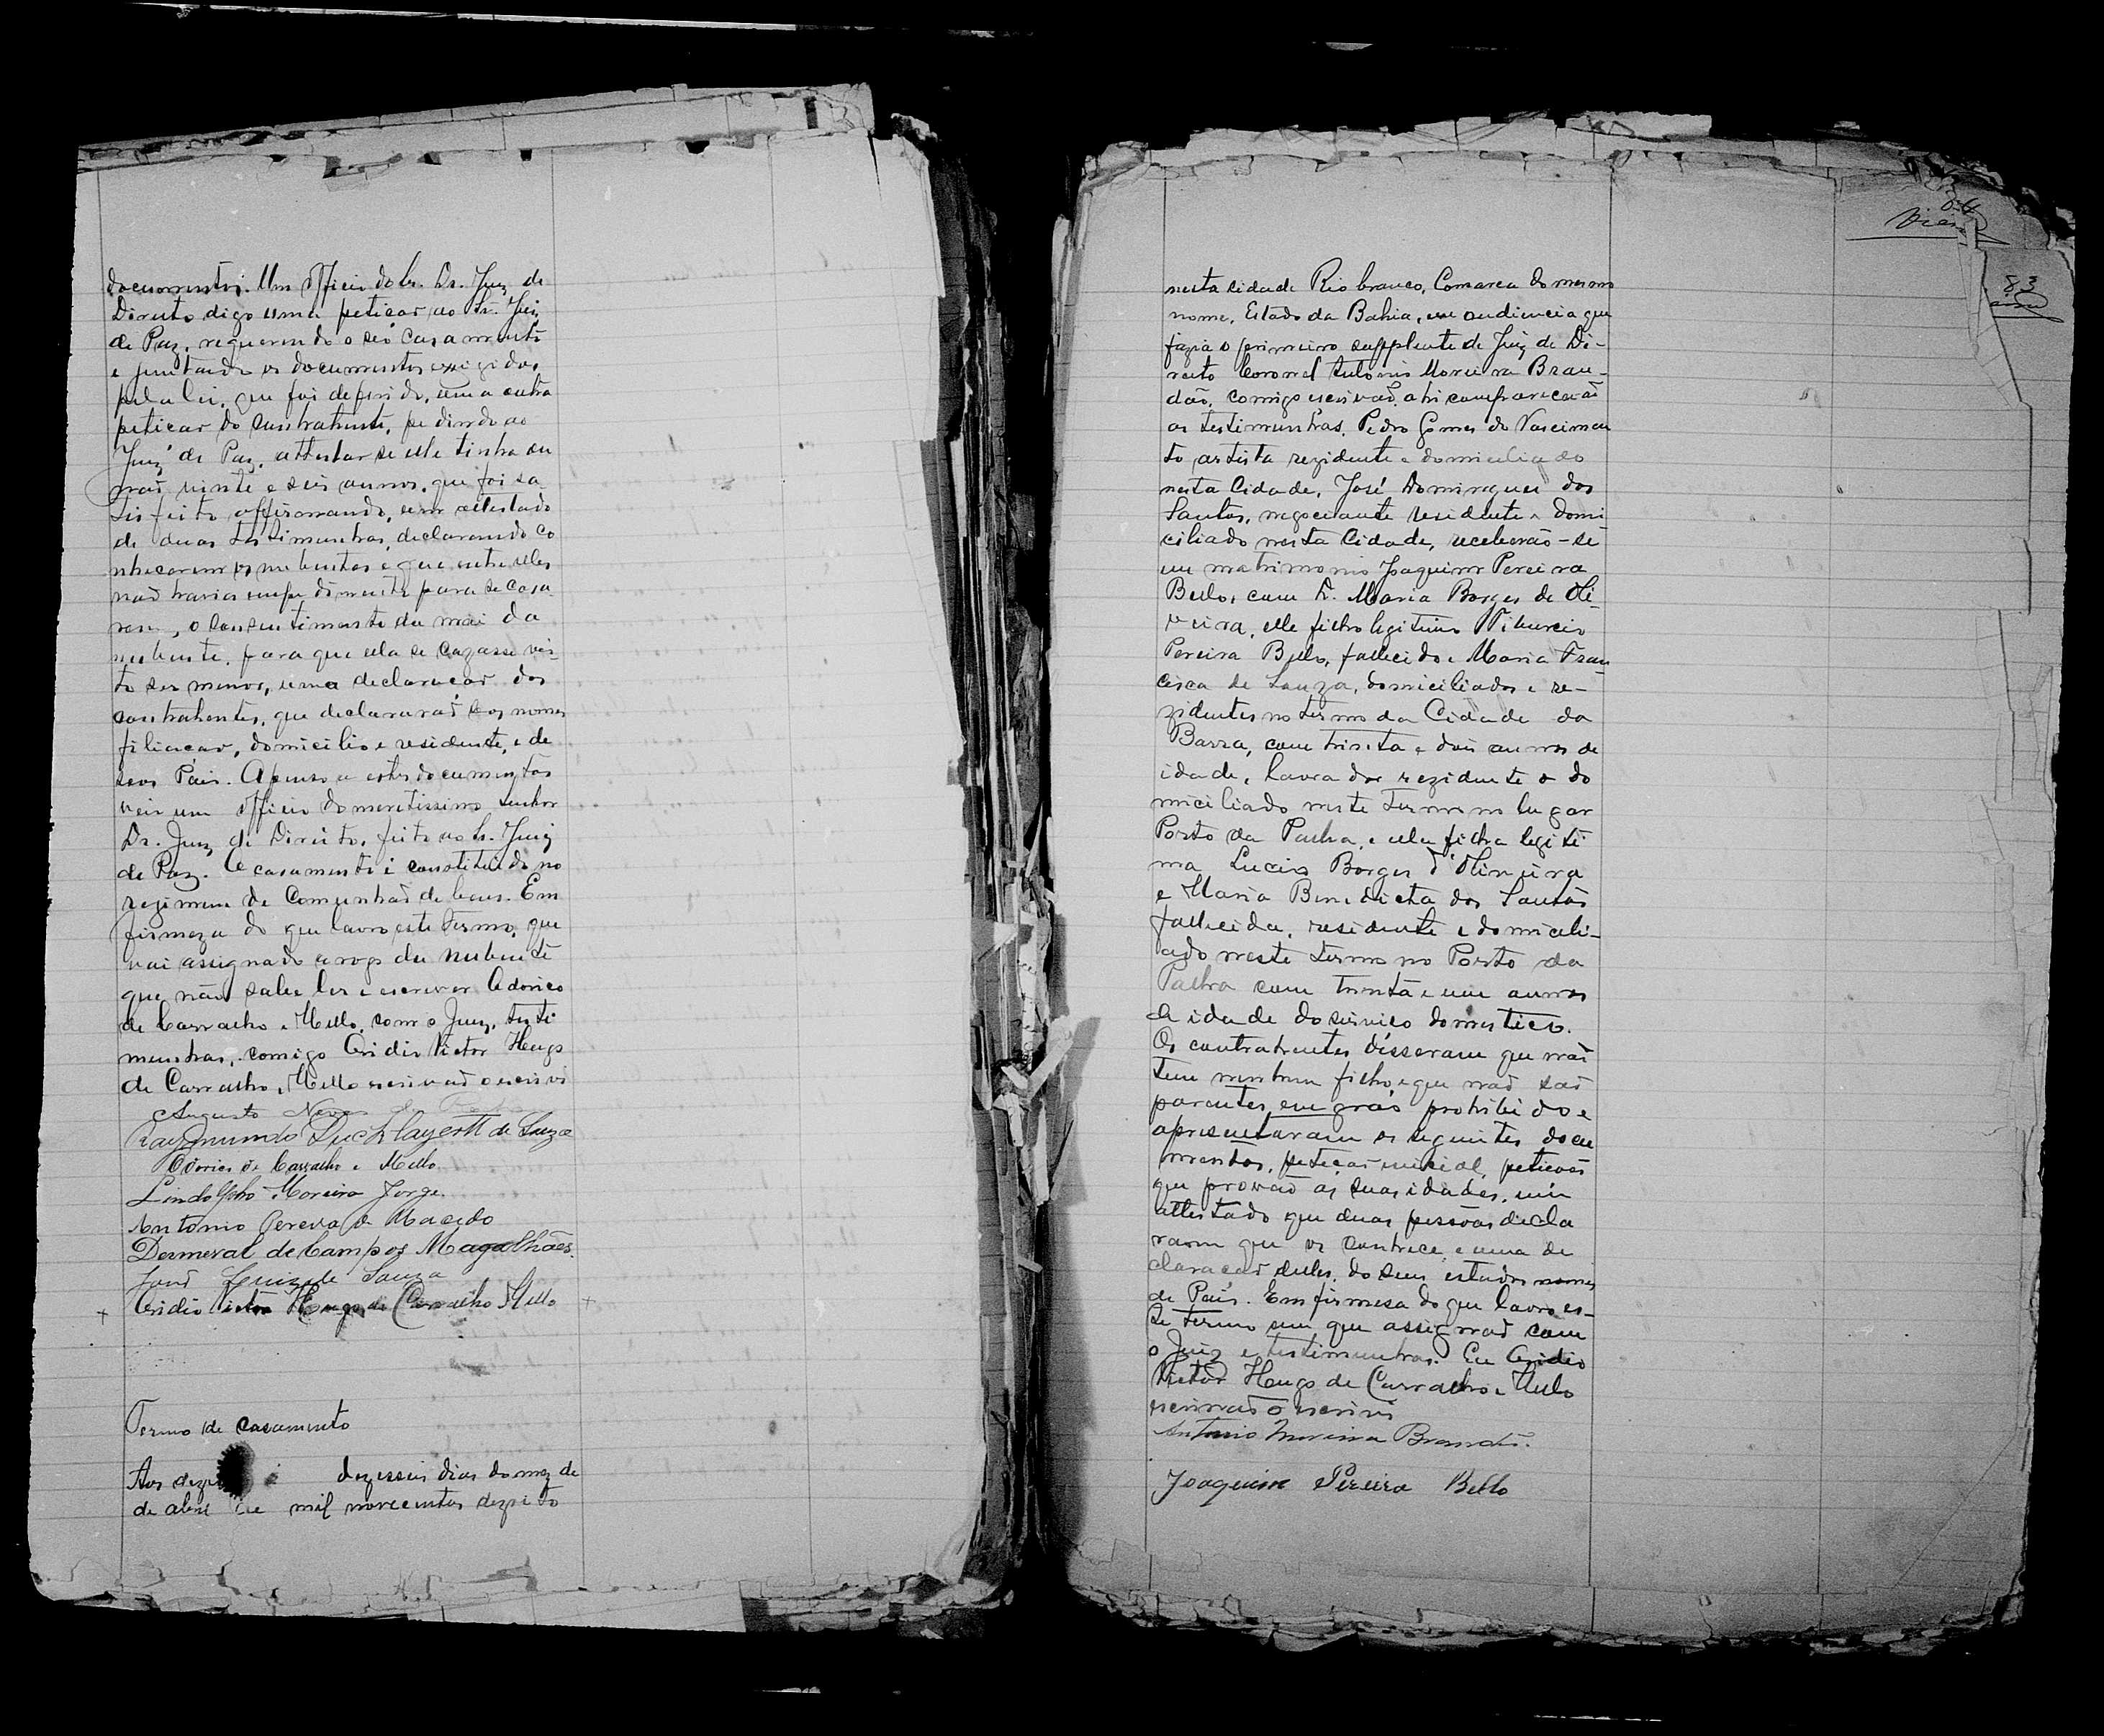 documentos. Um officio do Sr. Dr. Juiz de
Direito digo uma peticaõ ao Sr. Juiz
de Paz, requerendo o seo casamento
e juntando os documentos exigidos
pela lei, que foi deferido, uma outra
peticaõ do contrahente, pedindo ao
Juiz de Paz, attestar se elle tinha ou
naõ vinte e seis annos, que foi sa
tisfeito affirmando, um attestado
de duas testimunhas, declarando co
nhecerem os nubentes e que entre elles
naõ havia empedimento para se casa
rem, o consentimento da mãi da
nubente, para que ella se cazasse vis-
to ser menor, uma declaracaõ dos
contrahentes, que declararaõ seos nomes
filiacaõ, domicilio e residente, e de
seos Páis. Apenso a estes documentos
veio um officio do meretissimo Senhor
Dr. Juiz de Direito, feito ao Sr. Juiz
de Paz. O casamento é constituido no
regimem de Comunhaõ de bens. Em
firmeza do que lavro este termo, que
vai assignado a rogo da nubente
que não sabe ler e escrever Odorico
de Carvalho e Mello, com o Juiz, testi
munhas, comigo Ovidio Victor Hugo
de Carvalho e Mello escrivaõ o escrivi
Augusto Neves
Raymundo de Souza
Odorico de Carvalho e Mello
Lindolpho Moreira Jorge
Antonio Pereira de Macedo
Dermeval de Campos Magalhães.
José Luiz de Souza
Ovidio Victor Hugo de Carvalho e Mello
Termo de casamento
Aos dezesseis dias do mez de
de abril de mil novecentos dezoito
83
nesta cidade Rio branco, Comarca do mesmo
nome, Estado da Bahia, em audiencia que
fazia o primeiro supplente de Juiz de Di-
reito Coronel Antonio Moreira Bran-
dão, comigo escrivaõ, ahi comparecaraõ
as testimunhas, Pedro Gomes do Nascimen
to artista rezidente e domiciliado
nesta Cidade, José Domingues dos
Santos, negociante residente e domi
ciliado nesta Cidade, receberão-se
em matrimonio Joaquim Pereira
Bello, com D. Maria Borges de Oli-
veira, elle filho legitimo Tiburcio
Pereira Bello, fallecido e Maria Fran-
cisca de Souza, domiciliados e re-
zidentes no termo da Cidade da
Barra, com trinta e dois annos de
idade, lavrador rezidente e do
miciliado neste termo no lugar
Porto da Palha, e ella filha legiti
ma Lucio Borges d'Oliveira
e Maria Benedicta dos Santos
fallecida, residente e domicili-
ado neste termo no Porto da
Palha com trinta e um annos
de idade do serviço domestico.
Os contrahentes disseram que naõ
tem nenhum filho, e que naõ saõ
parentes em gráo prohibido e
apresentaram os seguintes docu
mentos, peticaõ inicial, peticoẽs
que provaõ as suas idades, um
attestado que duas pessoas decla
ram que os conhece, e uma de
claracaõ delles, do seus estados nomes
de Pais. Em firmesa do que lavro es-
te termo em que assignaõ com
o Juiz e testimunhas. Eu Ovidio
Victor Hugo de Carvalho e Mello
escrivaõ o escrivi
Antonio Moreira Brandão.
Joaquim Pereira Bello